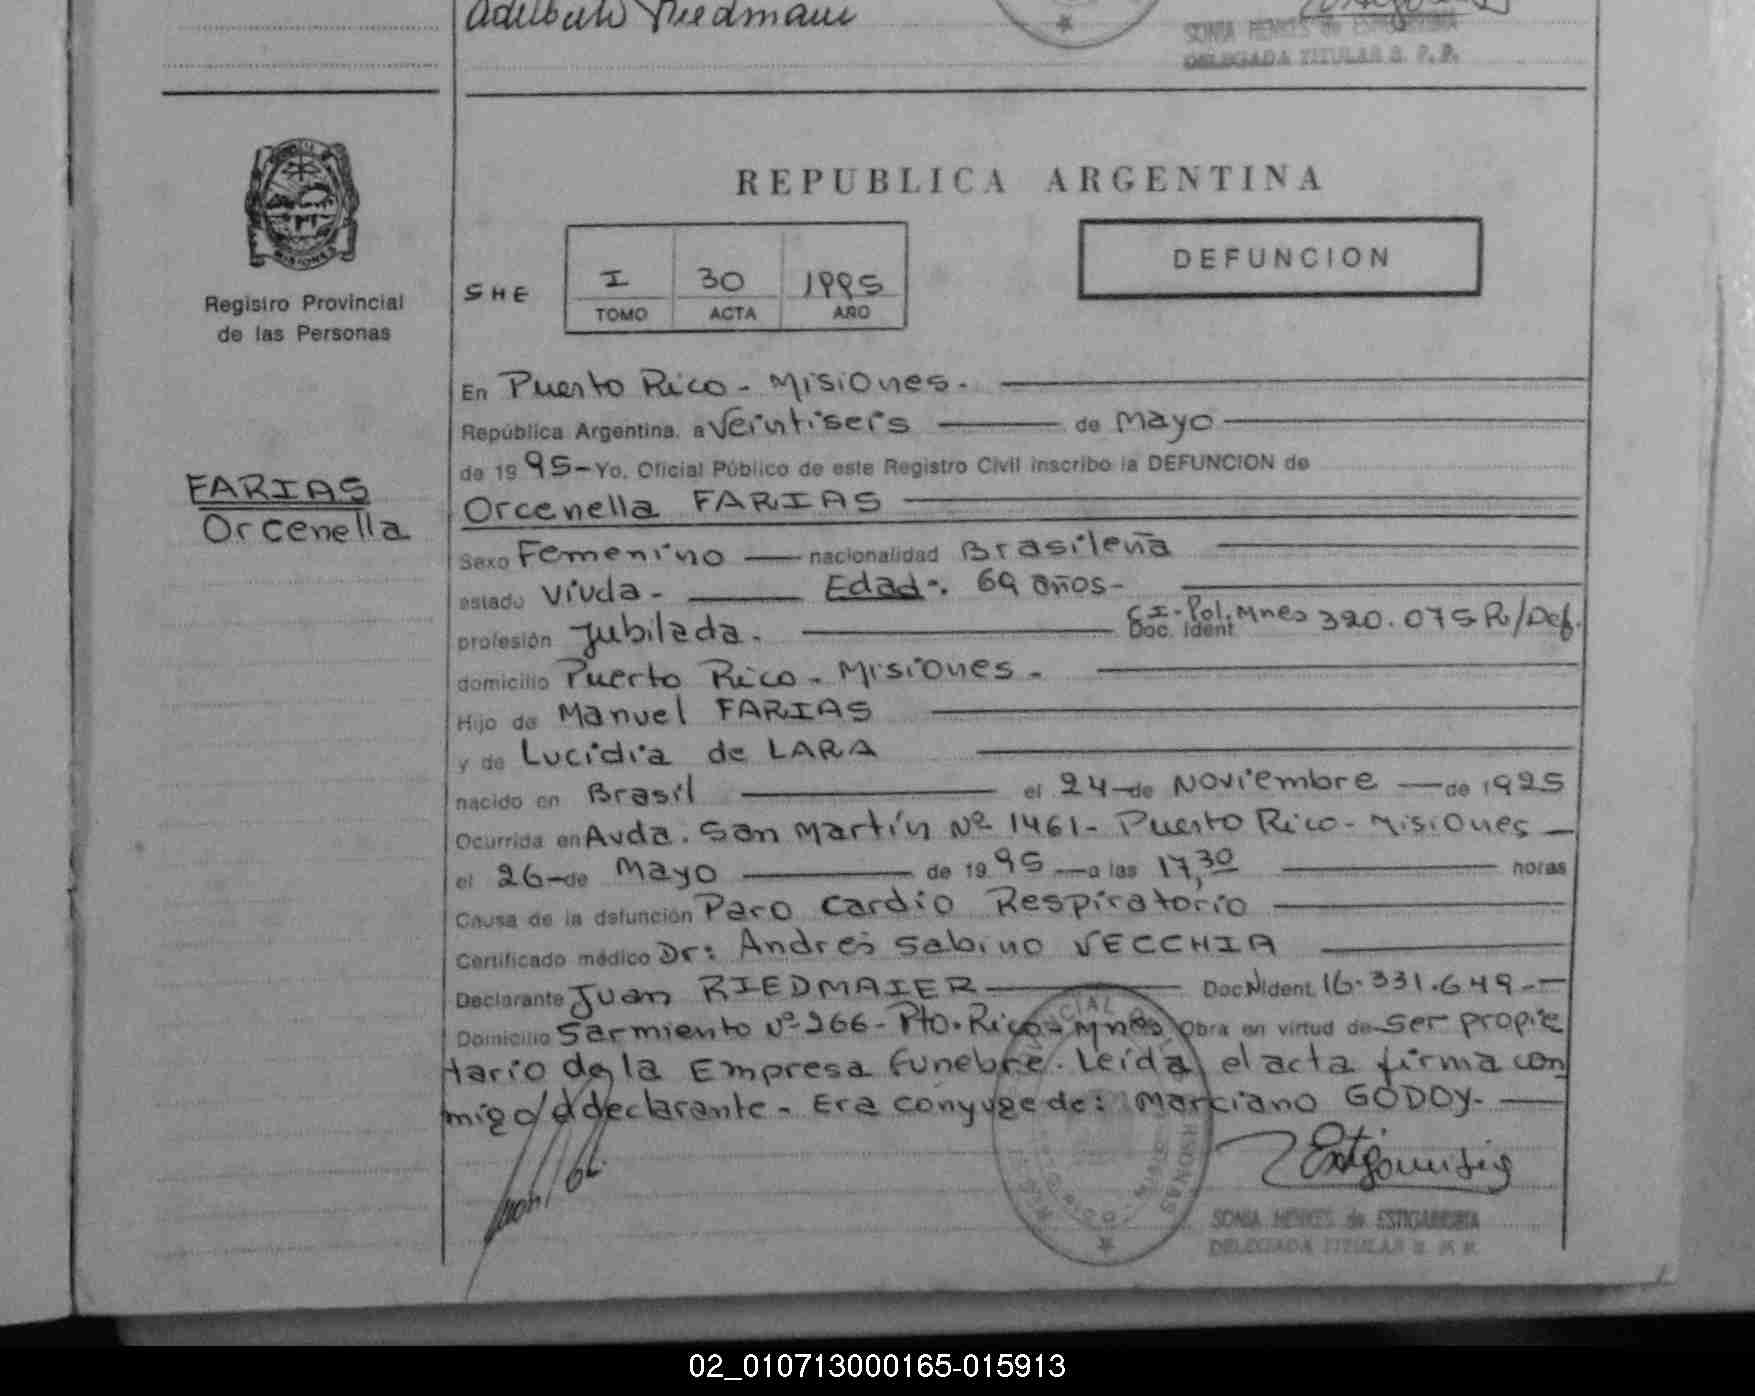 Adelberto Riedmaier
SONIA HENKES de ESTIGARRIBIA
DELEGADA TITULAR R. P. P.
REPUBLICA ARGENTINA
MISIONES
Registro Provincial
de las Personas
SHE
I 30 1995
TOMO ACTA AÑO
DEFUNCION
FARIAS
Orcenella
En Puerto Rico - Misiones.
República Argentina, a Veintiseis de Mayo
de 1995- Yo, Oficial Público de este Registro Civil inscribo la DEFUNCION de
Orcenella FARIAS
Sexo Femenino nacionalidad Brasileña
estado Viuda - Edad-. 69 años-
profesión Jubilada. Doc. Ident. C.I. Pol. Mnes 320.075 R/Def.
domicilio Puerto Rico - Misiones -
Hijo de Manuel FARIAS
y de Lucidia de LARA
nacido en Brasil el 24 de Noviembre de 1925
Ocurrida en Avda. San Martín Nº 1461- Puerto Rico- Misiones
el 26 de Mayo de 1995 a las 17,30 horas
Causa de la defunción Paro Cardio Respiratorio
Certificado médico Dr: Andres Sabino VECCHIA
Declarante Juan RIEDMAIER Doc. Ident. 16.331.649.-
Domicilio Sarmiento Nº 266- Pto. Rico- Mnes Obra en virtud de Ser propie
tario de la Empresa funebre. Leída el acta firma con
migo el declarante - Era conyuge de: Marciano GODOY-
SONIA HENKES de ESTIGARRIBIA
DELEGADA TITULAR R. P. P.
02_010713000165-015913